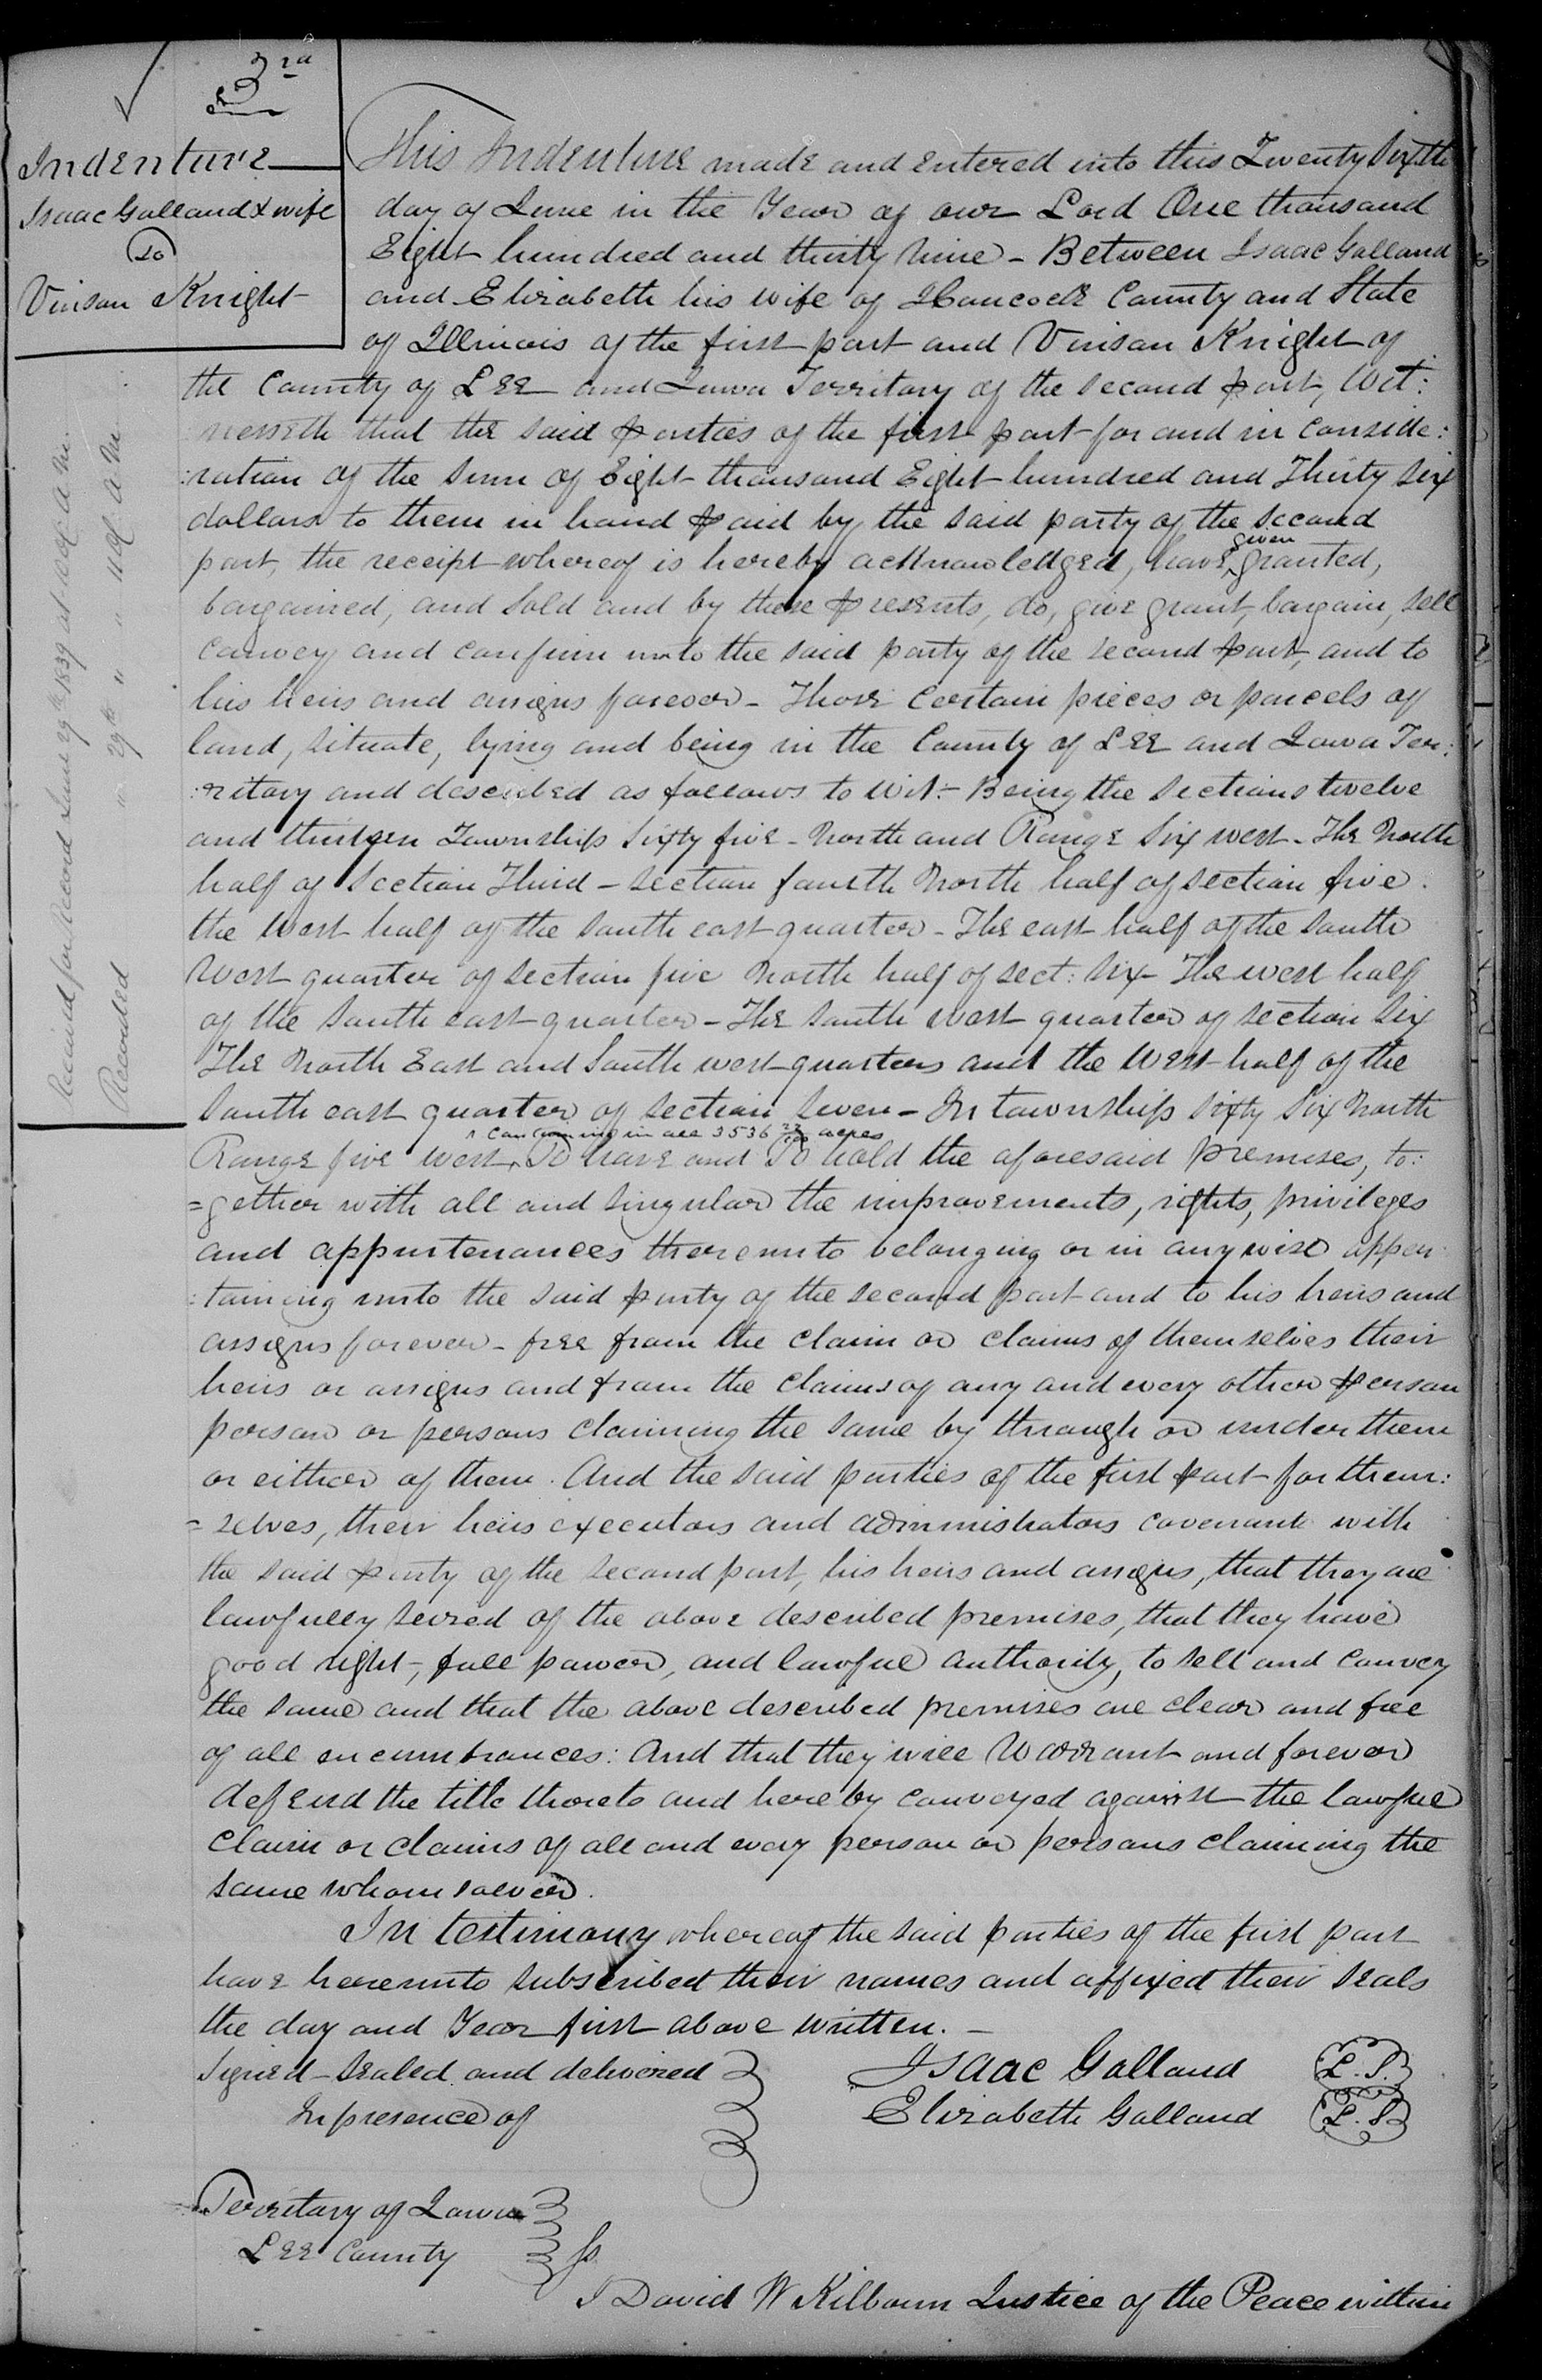 3rd
Indenture
Isaac Galland & wife
To
Vinson Knight
Received for Record June 29th 1839 at 10 o'c A.M.
Recorded " 29th " " 11 o'c A.M.
This Indenture made and entered into this Twenty Sixth
day of June in the Year of our Lord One thousand
Eight hundred and thirty Nine - Between Isaac Galland
and Elizabeth his wife of Hancock County and State
of Illinois of the first part and Vinson Knight of
the County of Lee and Iowa Territory of the second part, Wit:
nesseth that the said parties of the first part for and in conside:
:ration of the sum of Eight thousand Eight hundred and Thirty Six
dollars to them in hand paid by the said party of the second
part, the receipt whereof is hereby acknowledged, have ^given granted,
bargained, and Sold and by these presents, do, give grant, bargain, sell
convey and confirm unto the said party of the second part, and to
his heirs and assigns forever - Those certain pieces or parcels of
land, situate, lying and being in the County of Lee and Iowa Ter:
:ritory and described as follows to wit:- Being the Sections twelve
and thirteen Township Sixty five - North and Range Six west - The North
half of Section Third - section fourth North half of section five.
the West half of the south east quarter - The east half of the South
West quarter of section five North half of sect: six - The west half
of the South east quarter - The South West quarter of section Six
The North East and South west quarters and the West half of the
South east quarter of section Seven - In township sixty six North
Range five west, ^containing in all 3536 22/100 acres To have and To hold the aforesaid premises, to:
=gether with all and singular the improvements, rights, privileges
and appurtenances thereunto belonging or in anywise apper
:taining unto the said party of the second part and to his heirs and
assigns forever - free from the claim or claims of themselves their
heirs or assigns and from the claims of any and every other person
person or persons claiming the same by through or under them
or either of them. And the said parties of the first part for them:
=selves, their heirs executors and administrators covenant with
the said party of the second part, his heirs and assigns, that they are
lawfully seized of the above described premises, that they have
good right, full power, and lawful authority, to sell and convey
the same and that the above described premises are clear and free
of all encumbrances: And that they will Warrant and forever
defend the title thereto and hereby conveyed against the lawful
claim or claims of all and every person or persons claiming the
same whomsoever.
In testimony whereof the said parties of the first part
have hereunto subscribed their names and affixed their seals
the day and Year first above written. -
Signed - Sealed and delivered
In presence of
Isaac Galland L. S.
Elizabeth Galland L. S.
Territory of Iowa
Lee County Ss
I David W Kilbourn Justice of the Peace within